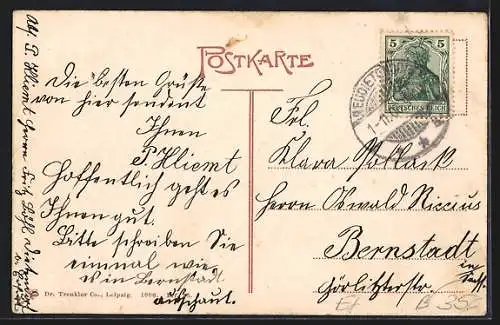 POSTKARTE
Die besten Grüße
von hier sendent
Ihnen
P. Kliemt
Hoffentlich geht es
Ihnen gut.
Bitte schreiben Sie
einmal wie
es in Bernstadt
ausschaut.
5 5
DEUTSCHES REICH
Frl.
Klara Pollack
Herrn Oswald
Bernstadt
in
Görlitzerstr.
Dr. Trenkler Co., Leipzig.
Abs. P. Kliemt